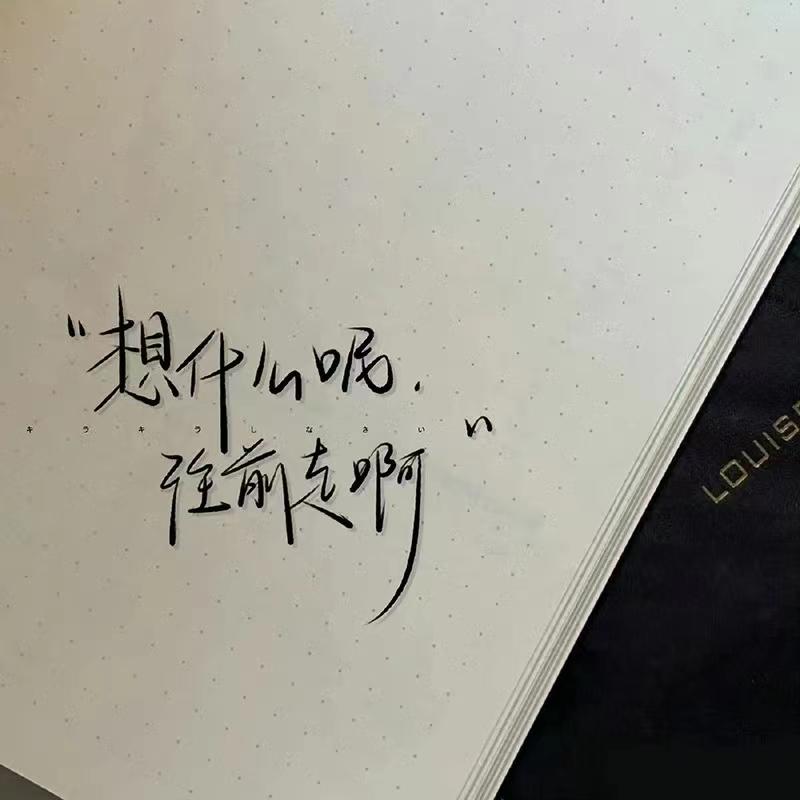 “想什么呢.
キラキラしなさい
往前走啊”
LOUIS